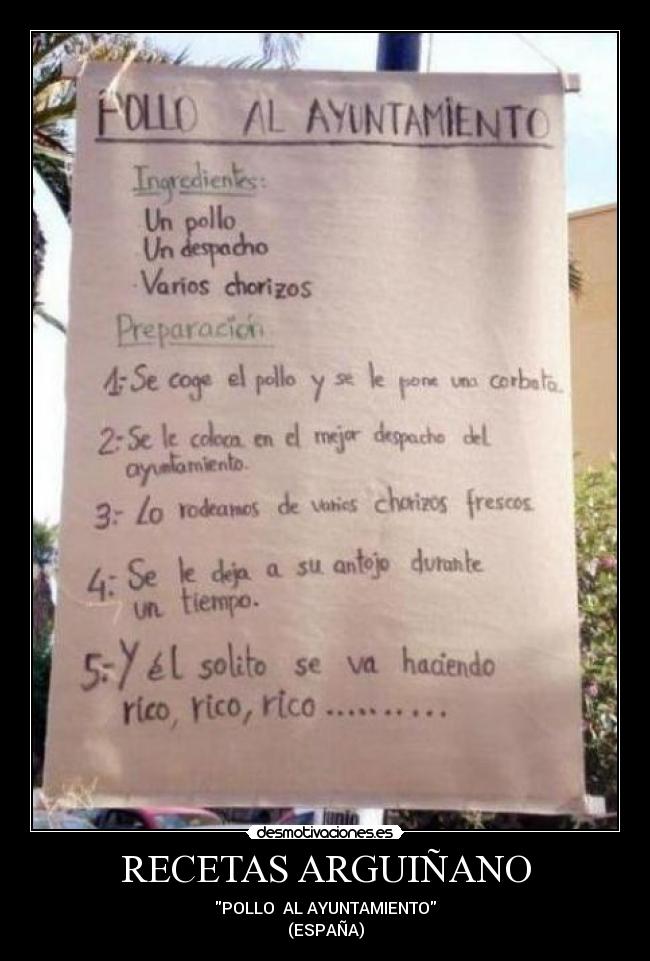 POLLO AL AYUNTAMIENTO
Ingredientes:
Un pollo
Un despacho
Varios chorizos
Preparación
1:- Se coge el pollo y se le pone una corbata.
2:- Se le coloca en el mejor despacho del
ayuntamiento.
3:- Lo rodeamos de varios chorizos frescos.
4:- Se le deja a su antojo durante
un tiempo.
5:- Y él solito se va haciendo
rico, rico, rico ..........
junio
desmotivaciones.es
RECETAS ARGUIÑANO
"POLLO AL AYUNTAMIENTO"
(ESPAÑA)